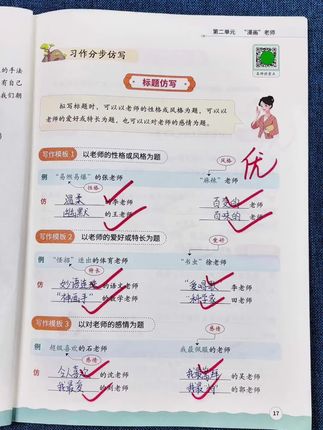 第二单元 "漫画"老师
习作分步仿写
标题仿写
拟写标题时,可以以老师的性格或风格为题,可以以老师的爱好或特长为题,也可以以对老师的感情为题。
优
写作模板1 以老师的性格或风格为题
风格
例 "易燃易爆"的张老师 "麻辣"老师
性格
仿 温柔的李老师 百变的老师
幽默的王老师 百味的老师
写作模板2 以老师的爱好或特长为题
爱好
例 "怪招"迭出的体育老师 "书虫"徐老师
特长
仿 妙语连珠的语文老师 李老师
"神画手"的数学老师 "科学家"田老师
写作模板3 以对老师的感情为题
例 超级喜欢的石老师 我最佩服的老师
感情 感情
仿 令人喜欢的沈老师 的吴老师
我最爱的刘老师 我最 的郭老师
17
的手法
上的
我们期